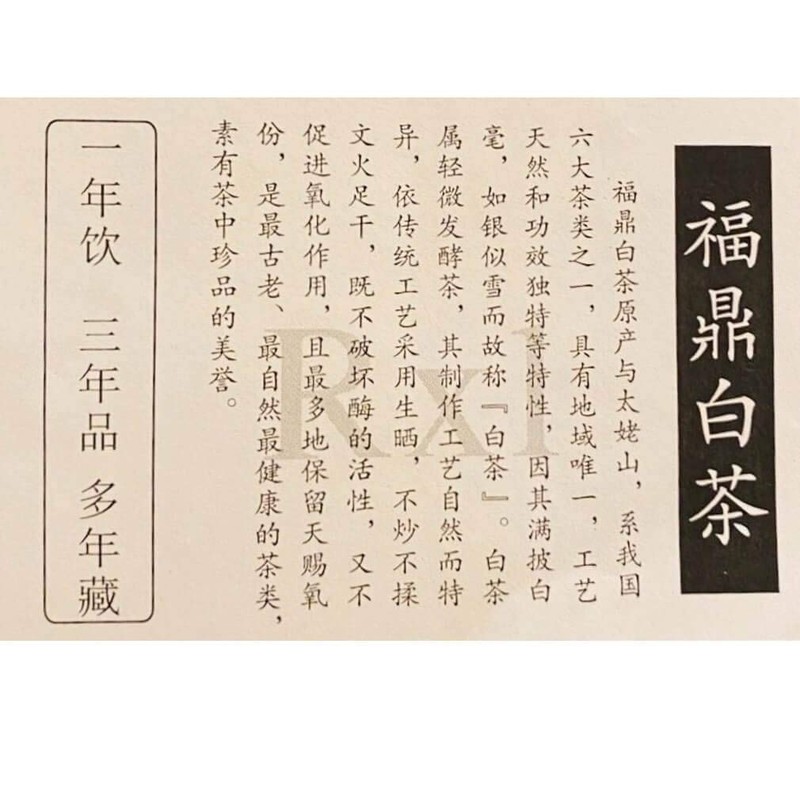 福鼎白茶
福鼎白茶原产与太姥山，系我国
六大茶类之一，具有地域唯一，工艺
天然和功效独特等特性，因其满披白
毫，如银似雪而故称『白茶』。白茶
属轻微发酵茶，其制作工艺自然而特
异，依传统工艺采用生晒，不炒不揉
文火足干，既不破坏酶的活性，又不
促进氧化作用，且最多地保留天赐氧
份，是最古老、最自然最健康的茶类，
素有茶中珍品的美誉。
一年饮 三年品 多年藏
Rxl